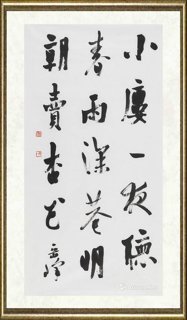 小廔一夜聽
春雨深巷明
朝賣杏花